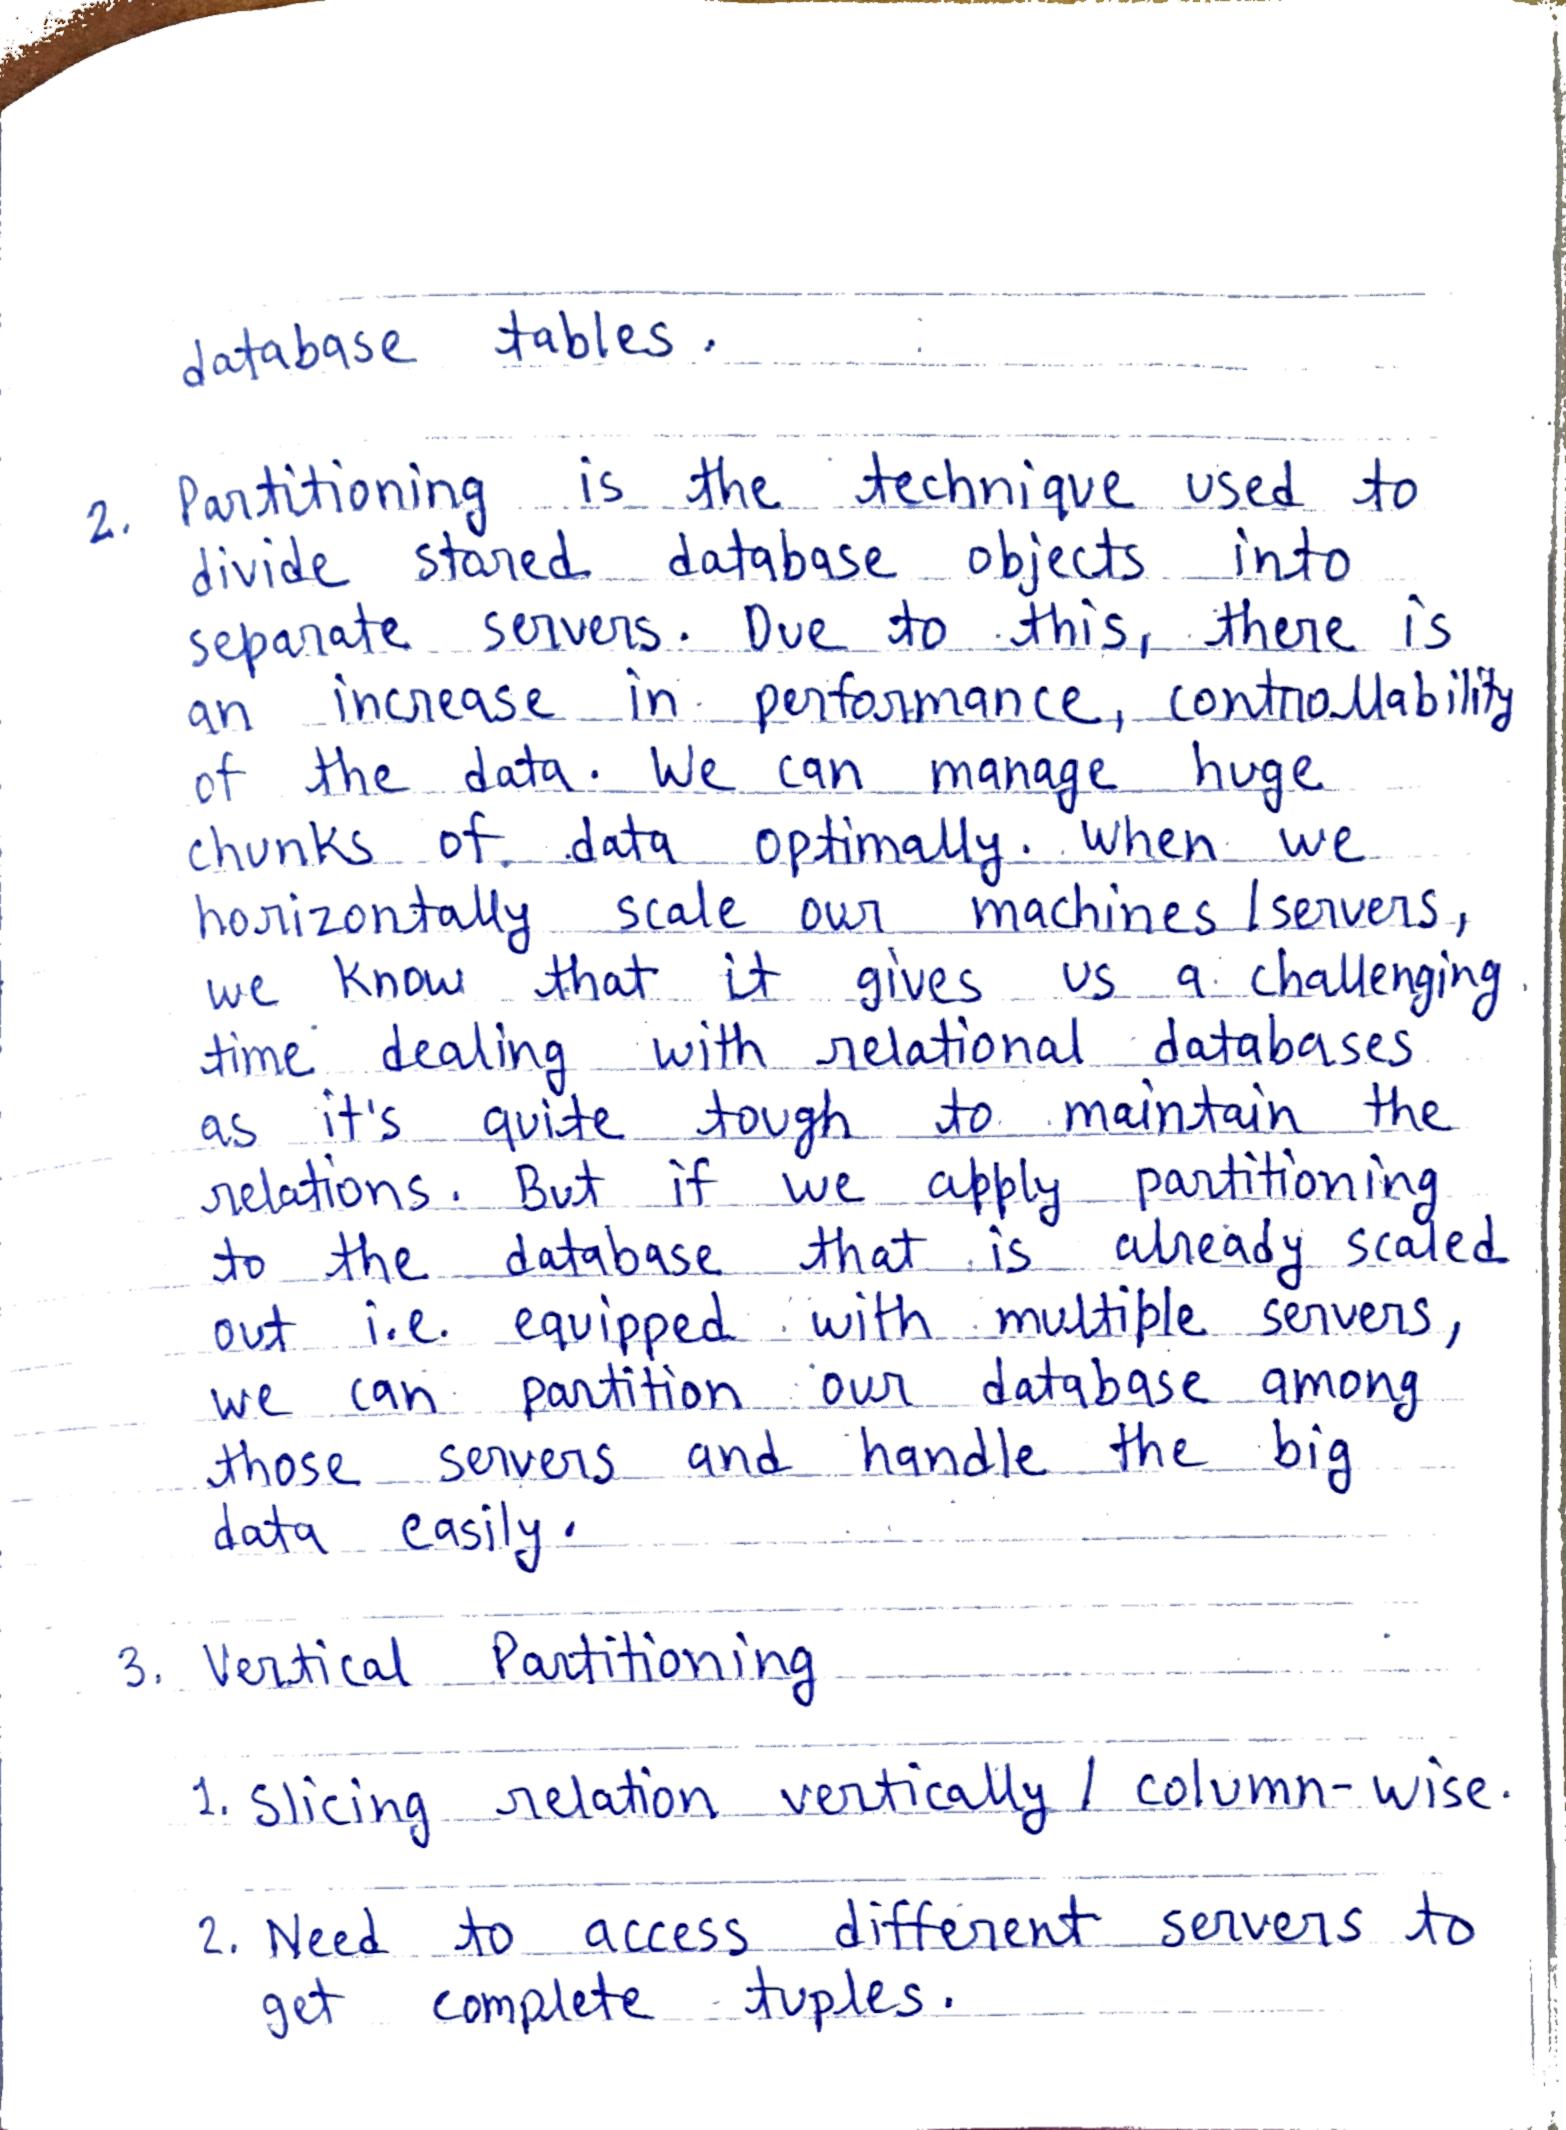 database tables.
2. Partitioning is the technique used to
divide stored database objects into
separate servers. Due to this, there is
an increase in performance, controllability
of the data. We can manage huge
chunks of data optimally. When we
horizontally scale our machines/servers,
we know that it gives us a challenging
time dealing with relational databases
as it's quite tough to maintain the
relations. But if we apply partitioning
to the database that is already scaled
out i.e. equipped with multiple servers,
we can partition our database among
those servers and handle the big
data easily.
3. Vertical Partitioning
1. Slicing relation vertically / column-wise.
2. Need to access different servers to
get complete tuples.